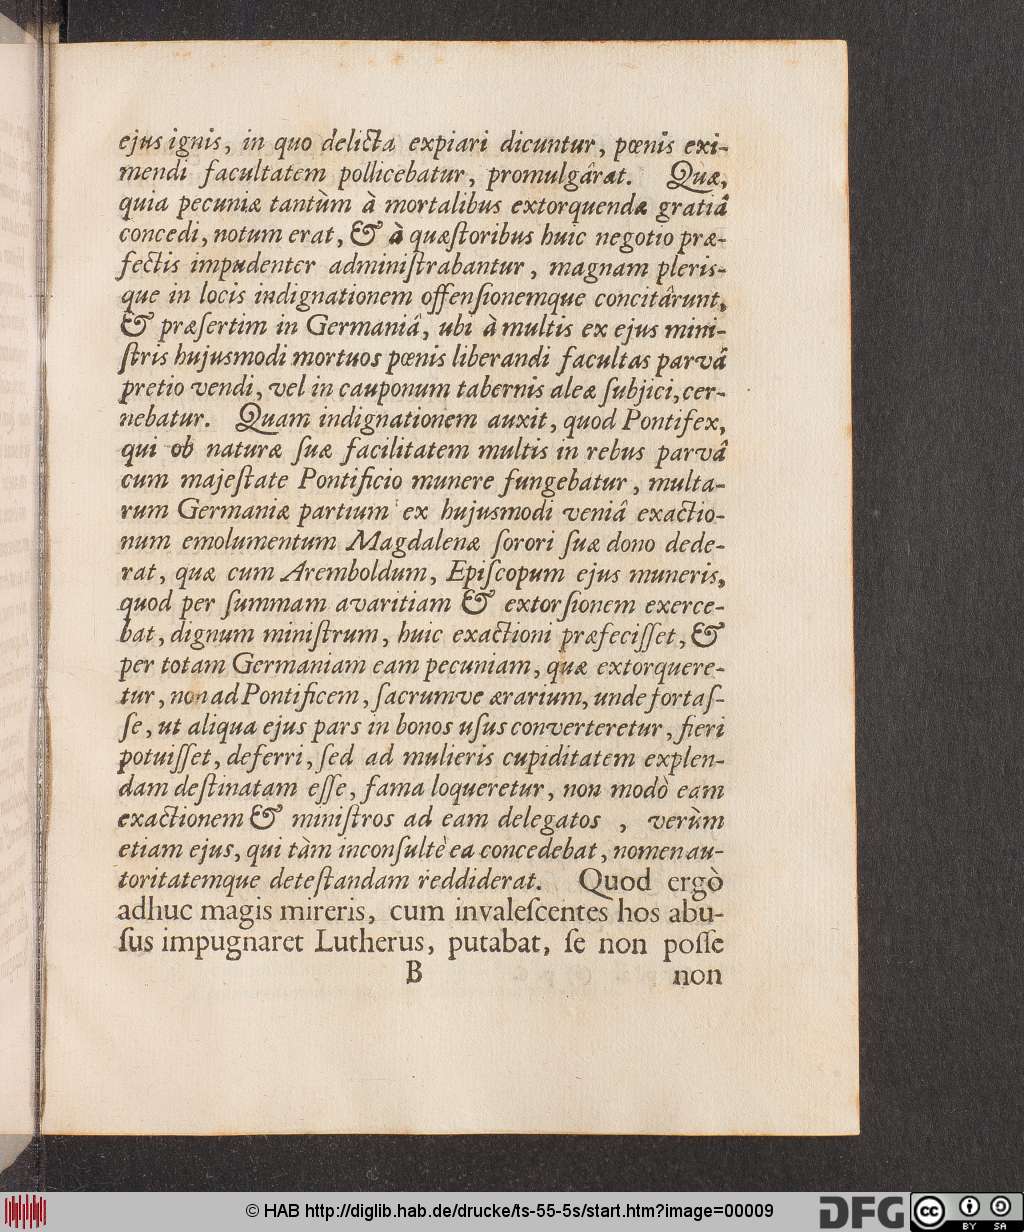 ejus ignis, in quo delicta expiari dicuntur, pœnis exi-
mendi facultatem pollicebatur, promulgârat. Quæ,
quia pecuniæ tantùm à mortalibus extorquendæ gratiâ
concedi, notum erat, & à quæſtoribus huic negotio præ-
fectis impudenter adminiſtrabantur, magnam pleris-
que in locis indignationem offenſionemque concitârunt,
& præſertim in Germaniâ, ubi à multis ex ejus mini-
ſtris hujusmodi mortuos pœnis liberandi facultas parvâ
pretio vendi, vel in cauponum tabernis aleæ ſubjici, cer-
nebatur. Quam indignationem auxit, quod Pontifex,
qui ob naturæ ſuæ facilitatem multis in rebus parvâ
cum majeſtate Pontificio munere fungebatur, multa-
rum Germaniæ partium ex hujusmodi veniâ exactio-
num emolumentum Magdalenæ ſorori ſuæ dono dede-
rat, quæ cum Aremboldum, Epiſcopum ejus muneris,
quod per ſummam avaritiam & extorſionem exerce-
bat, dignum miniſtrum, huic exactioni præfeciſſet, &
per totam Germaniam eam pecuniam, quæ extorquere-
tur, non ad Pontificem, ſacrumve ærarium, unde fortaſ-
ſe, ut aliqua ejus pars in bonos uſus converteretur, fieri
potuiſſet, deferri, ſed ad mulieris cupiditatem explen-
dam deſtinatam eſſe, fama loqueretur, non modò eam
exactionem & miniſtros ad eam delegatos , verùm
etiam ejus, qui tàm inconſultè ea concedebat, nomen au-
toritatemque deteſtandam reddiderat. Quod ergò
adhuc magis mireris, cum invaleſcentes hos abu-
ſus impugnaret Lutherus, putabat, ſe non poſſe
B non
© HAB http://diglib.hab.de/drucke/ts-55-5s/start.htm?image=00009
DFG cc BY SA